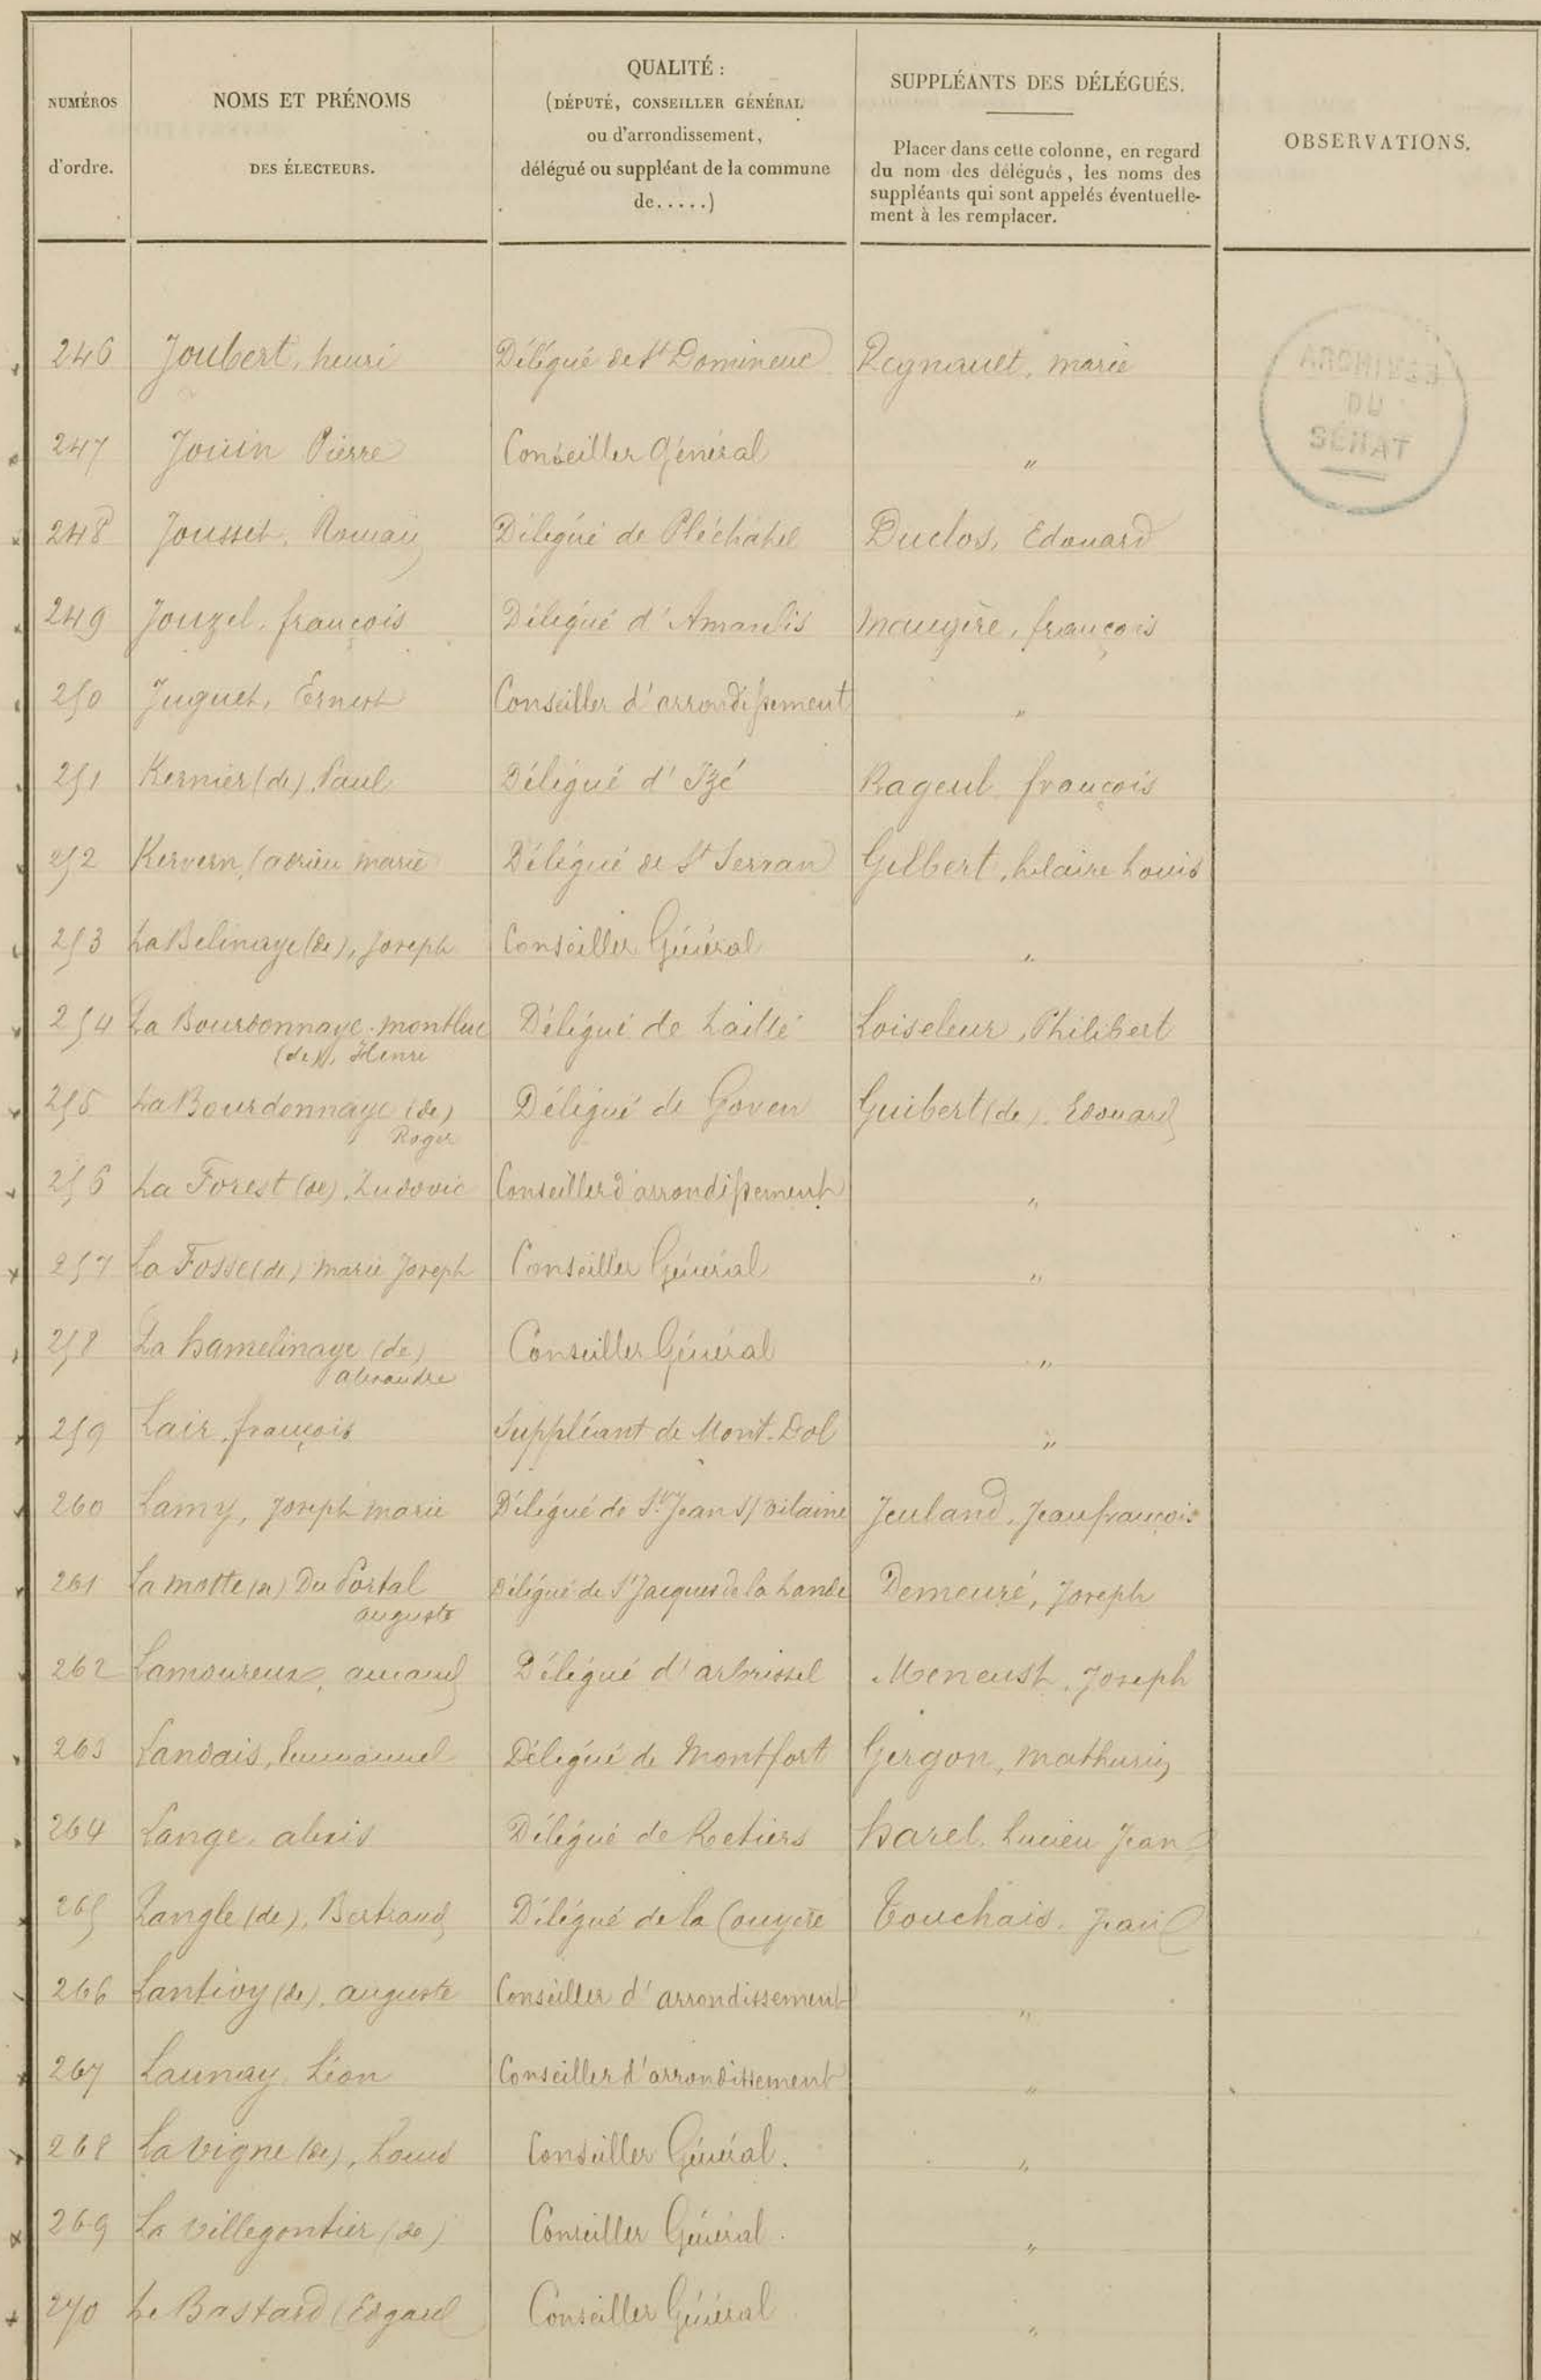 NUMÉROS d'ordre.
NOMS ET PRÉNOMS DES ÉLECTEURS.
QUALITÉ :
(DÉPUTÉ, CONSEILLER GÉNÉRAL
ou d'arrondissement,
délégué ou suppléant de la commune
de.....)
SUPPLÉANTS DES DÉLÉGUÉS.
Placer dans cette colonne, en regard
du nom des délégués, les noms des
suppléants qui sont appelés éventuelle-
ment à les remplacer.
OBSERVATIONS.
ARCHIVES
DU
SÉNAT
246 Joubert, henri Délégué de St Domineuc Regnault, marie
247 Jouin Pierre Conseiller Général "
248 Jousset, Romain Délégué de Pléchatel Duclos, Edouard
249 Jouzel, françois Délégué d'Amanlis Maugère, françois
250 Juguet, Ernest Conseiller d'arrondissement "
251 Kernier (de), Paul Délégué d'Izé Rageul françois
252 Kervern, adrien marie Délégué de St Servan Gilbert, hilaire Louis
253 La Belinaye (de), Joseph Conseiller Général "
254 La Bourdonnaye-montluc Délégué de Laillé Loiseleur, Philibert
(de), Henri
255 La Bourdonnaye (de) Délégué de Goven Guibert (de). Edouard
Roger
256 La Forest (de), Ludovic Conseiller d'arrondissement "
257 La Fosse (de) marie Joseph Conseiller Général "
258 La hamelinaye (de) Conseiller Général "
alexandre
259 Lair, françois Suppléant de Mont-Dol "
260 Lamy, Joseph marie Délégué de St Jean s/ vilaine Jeuland, Jean françois
261 La motte (de) Du Portal Délégué de St Jacques de la Lande Demeuré, Joseph
auguste
262 Lamoureux, amand Délégué d'arbrissel Meneust, Joseph
263 Landais, Emmanuel Délégué de Montfort Gergon, mathurin
264 Lange, alexis Délégué de Retiers harel, Lucien Jean
265 Langle (de), Bertrand Délégué de la Couyère Touchais, Jean
266 Lantivy (de), auguste Conseiller d'arrondissement "
267 Launay, Léon Conseiller d'arrondissement "
268 La vigne (de), Louis Conseiller Général. "
269 La villegontier (de) Conseiller Général. "
270 Le Bastard Edgard Conseiller Général "